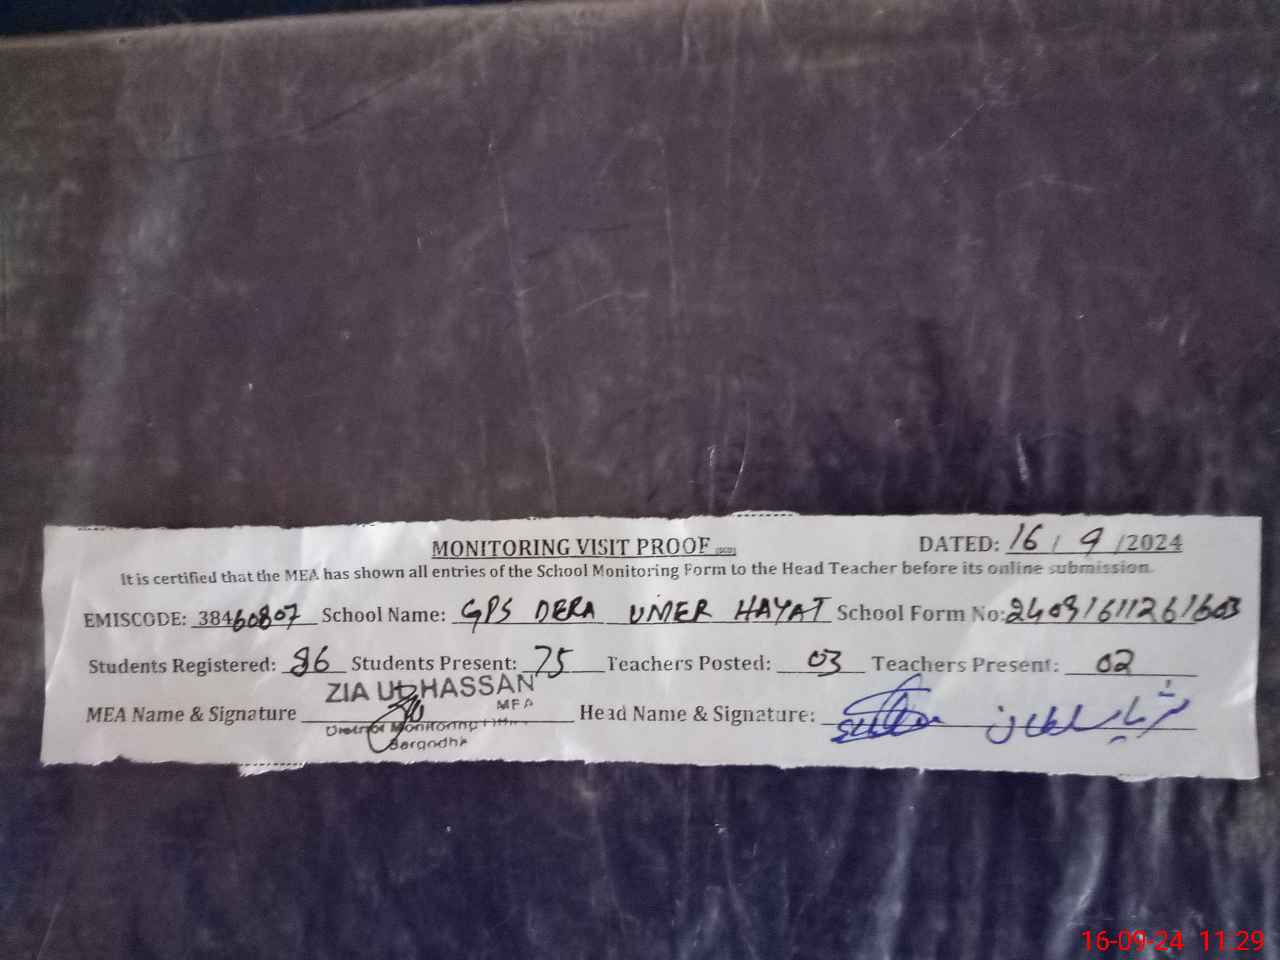 MONITORING VISIT PROOF DATED: 16 / 9 /2024
It is certified that the MEA has shown all entries of the School Monitoring Form to the Head Teacher before its online submission.
EMISCODE: 38460807 School Name: GPS DERA UMER HAYAT School Form No:
Students Registered: 86 Students Present: 75 Teachers Posted: 03 Teachers Present: 02
ZIA UL HASSAN
MEA
MEA Name & Signature Head Name & Signature: سلطان
District Monitoring
Sargodha
16-09-24 11:29